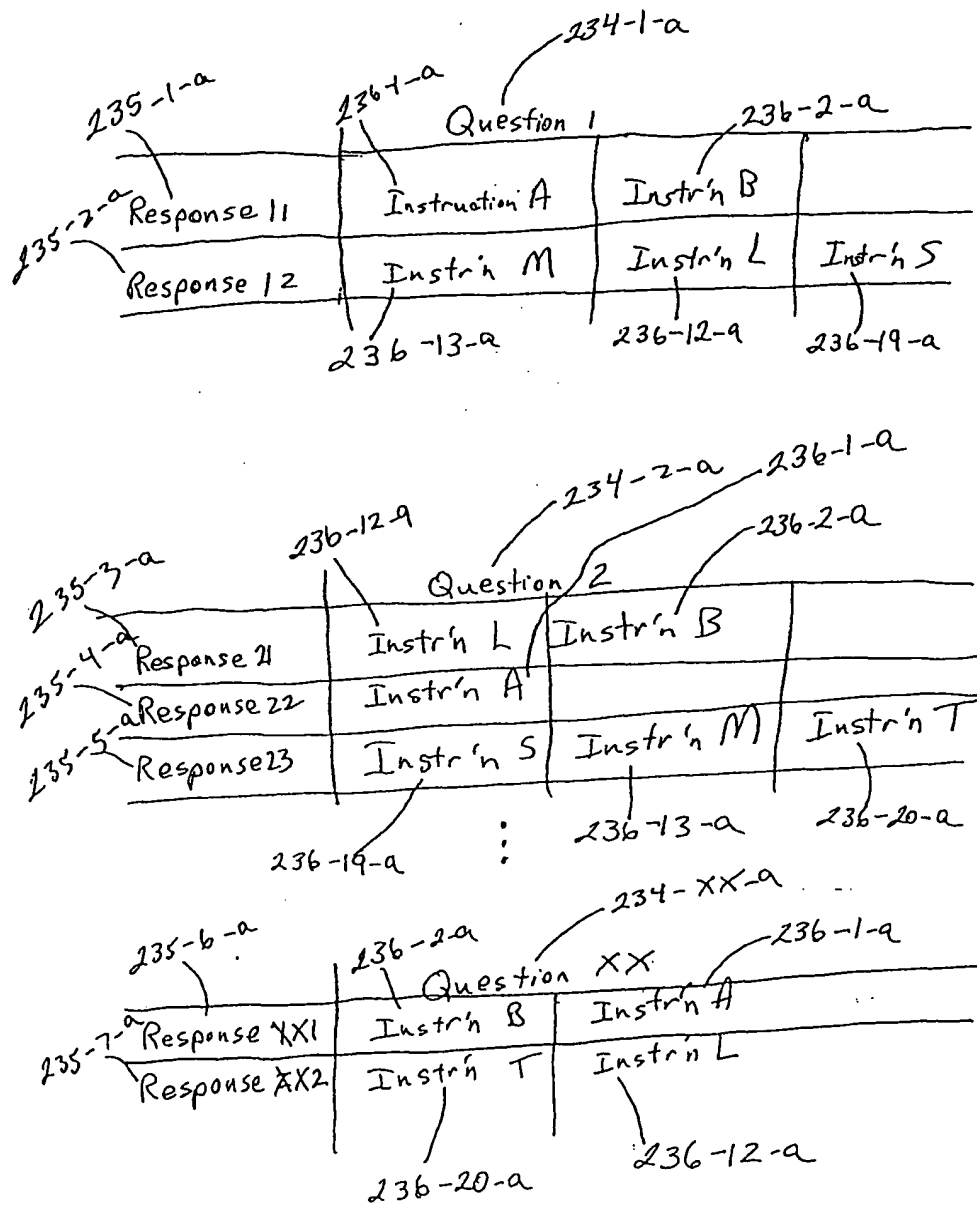 234-1-a
235-1-a 236-1-a 236-2-a
Question 1
Response 11 Instruction A Instr'n B
235-2-a
Response 12 Instr'n M Instr'n L Instr'n S
236-13-a 236-12-a 236-19-a
234-2-a 236-1-a
236-12-a 236-2-a
235-3-a Question 2
Response 21 Instr'n L Instr'n B
235-4-a Response 22 Instr'n A
235-5-a Response 23 Instr'n S Instr'n M Instr'n T
236-19-a 236-13-a 236-20-a
234-XX-a
235-6-a 236-2-a 236-1-a
Question XX
Response XX1 Instr'n B Instr'n A
235-7-a Response XX2 Instr'n T Instr'n L
236-20-a 236-12-a